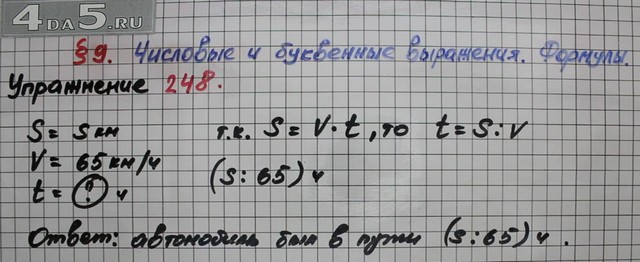 4DA5.RU
§9. Числовые и буквенные выражения. Формулы.
Упражнение 248.
S = S км т.к. S = V · t, то t = S : V
V = 65 км/ч (S : 65) ч
t = ? ч
Ответ: автомобиль был в пути (S : 65) ч.